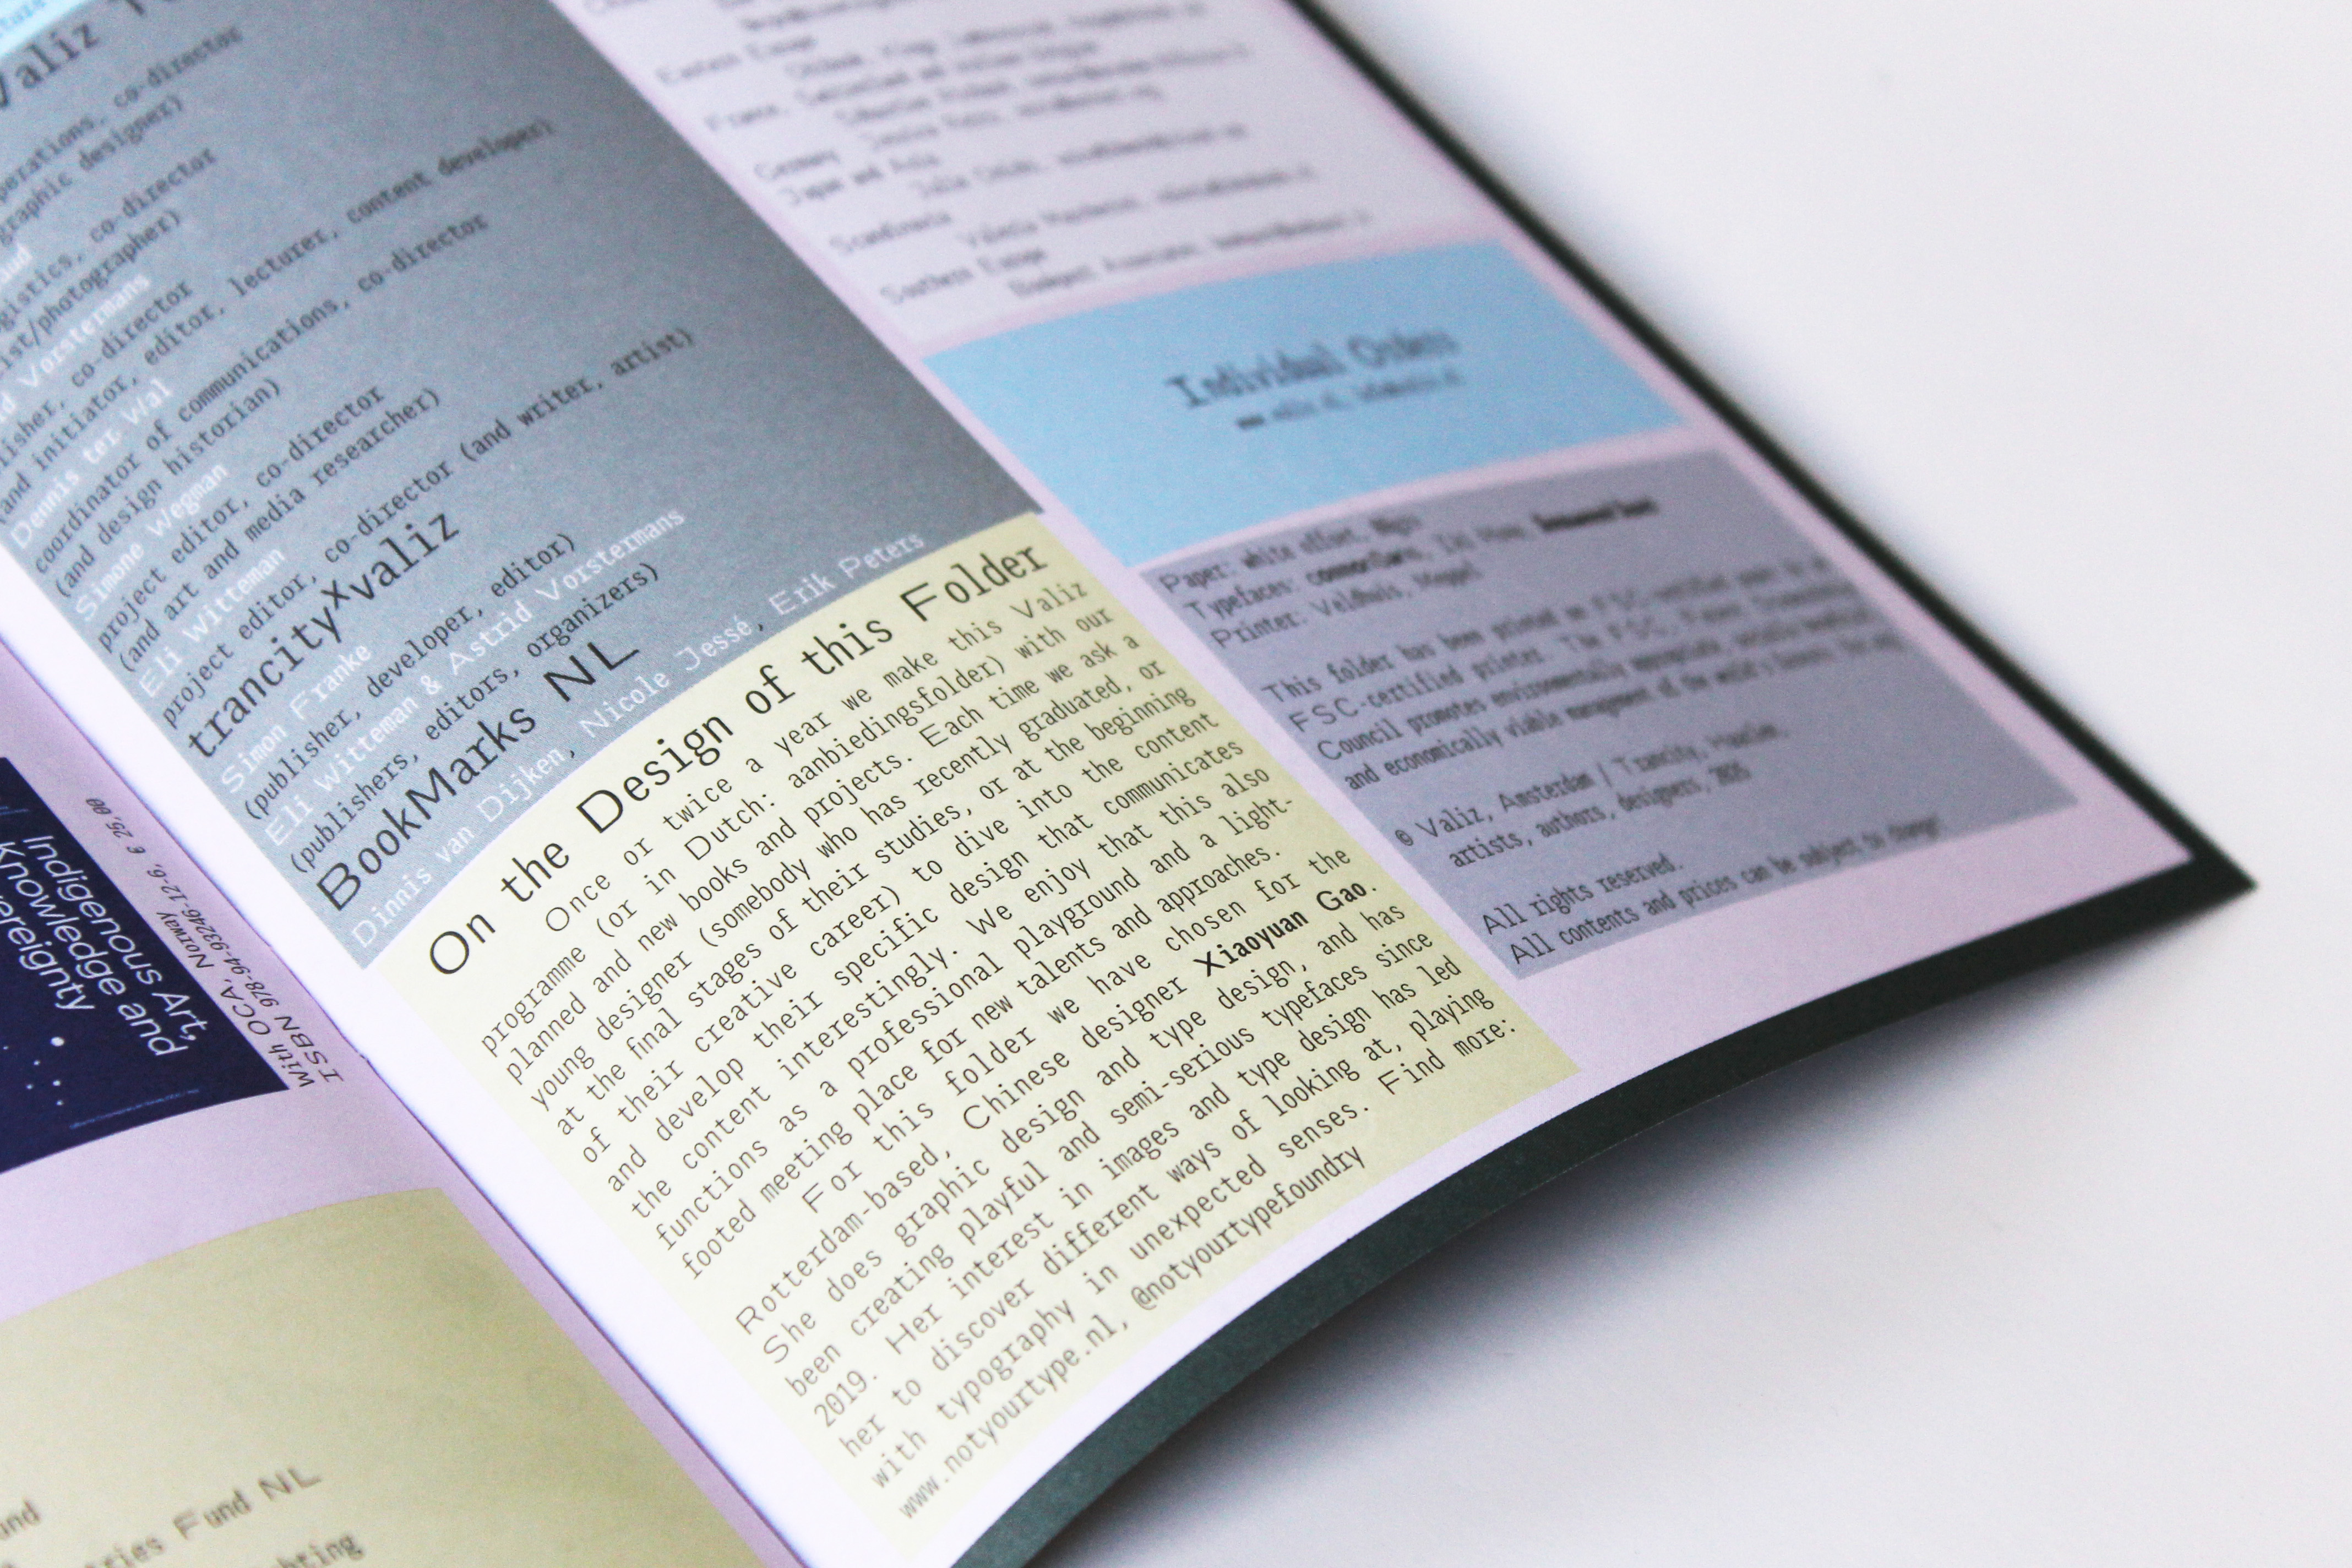 Valiz
operations, co-director
graphic designer)
logistics, co-director
/photographer)
Vorstermans
publisher, co-director
(and initiator, editor, lecturer, content developer)
Dennis ter Wal
coordinator of communications, co-director
(and design historian)
Simone Wegman
project editor, co-director
(and art and media researcher)
Eli Witteman
project editor, co-director (and writer, artist)
trancityxvaliz
Simon Franke
(publisher, developer, editor)
Eli Witteman & Astrid Vorstermans
(publishers, editors, organizers)
BookMarks NL
Dinnis van Dijken, Nicole Jessé, Erik Peters
On the Design of this Folder
Once or twice a year we make this Valiz
programme (or in Dutch: aanbiedingsfolder) with our
planned and new books and projects. Each time we ask a
young designer (somebody who has recently graduated, or
at the final stages of their studies, or at the beginning
of their creative career) to dive into the content
and develop their specific design that communicates
the content interestingly. We enjoy that this also
functions as a professional playground and a light-
footed meeting place for new talents and approaches.
For this folder we have chosen for the
Rotterdam-based, Chinese designer Xiaoyuan Gao.
She does graphic design and type design, and has
been creating playful and semi-serious typefaces since
2019. Her interest in images and type design has led
her to discover different ways of looking at, playing
with typography in unexpected senses. Find more:
www.notyourtype.nl, @notyourtypefoundry
Eastern Europe
France,
Germany
Japan and Asia
Scandinavia
Southern Europe
Individual Orders
Paper: white offset,
Typefaces:
Printer: Veldhuis, Meppel
This folder has been printed on FSC-certified paper by an
FSC-certified printer. The FSC, Forest Stewardship
Council promotes environmentally appropriate, socially beneficial
and economically viable management of the world's forests.
© Valiz, Amsterdam / Trancity, Haarlem,
artists, authors, designers,
All rights reserved.
All contents and prices can be subject to change
Indigenous Art,
Knowledge and
Sovereignty
With OCA, Norway
ISBN 978-94-93246-12-6, € 25,00
Fund NL